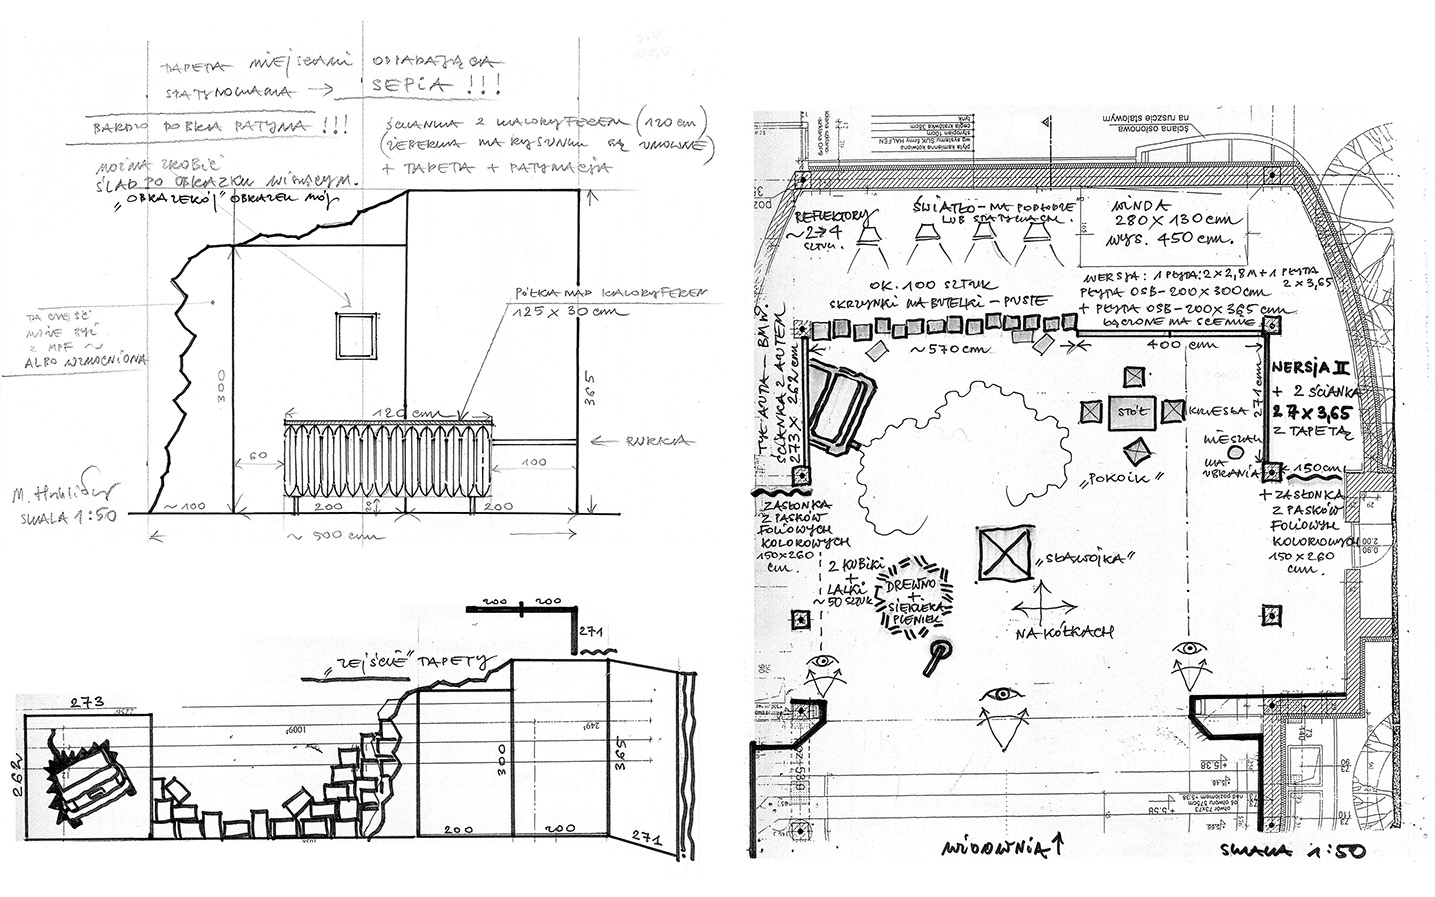 TAPETA MIEJSCAMI ODPADAJĄCA
STATYNOWANA → SEPIA !!!
BARDZO DOBRA PATYNA !!!
MOŻNA ZROBIĆ
ŚLAD PO OBRAZKU WISZĄCYM.
„OBRAZEK ÓJ" OBRAZEK MÓJ
ŚCIANKA Z KALORYFEREM (120 cm)
(ŻEBERKA NA RYSUNKU SĄ UMOWNE)
+ TAPETA + PATYNACJA
PÓŁKA NAD KALORYFEREM
125 X 30 cm
TA CZĘŚĆ
MOŻE BYĆ
Z MPF
ALBO WZMOCNIONA
300
365
120 cm
← RURKA
60
100
~100
200
200
~ 500 cm
SKALA 1:50
200 200
271
„ZEJŚCIE" TAPETY
273
262
300
365
200
200
271
ściana osłonowa
na ruszcie stalowym
płyta kamienna
wg systemu SUK firmy HALFEN
styropian 10cm
cegła kratowa 38cm
tynk
REFLEKTORY
~ 2→4
SZTUK.
ŚWIATŁO – NA PODŁODZE
LUB STATYWACH.
WINDA
280 X 130 cm
WYS. 450 cm.
OK. 100 SZTUK
SKRZYNKI NA BUTELKI – PUSTE
WERSJA: 1 PŁYTA: 2 X 2,8M + 1 PŁYTA
2 X 3,65
PŁYTA OSB – 200 X 300 cm
+ PŁYTA OSB – 200 X 365 cm
ŁĄCZONE NA SCENIE
~ 570 cm
400 cm
TYŁ AUTA – BMW.
ŚCIANKA Z AUTEM
273 X 262 cm
271 cm
WERSJA II
+ 2 ŚCIANKA
27 X 3,65
Z TAPETĄ
STÓŁ
KRZESŁA
WIESZAK
NA
UBRANIA
„POKOIK"
150 cm
ZASŁONKA
Z PASKÓW
FOLIOWYCH
KOLOROWYCH
150 X 260
cm.
+ ZASŁONKA
Z PASKÓW
FOLIOWYCH
KOLOROWYCH
150 X 260
cm.
2 KUBIKI
+
LALKI
~ 50 SZTUK
DREWNO
+
SIEKIERA
PIENIEK
„SŁAWOJKA"
NA KÓŁKACH
WIDOWNIA ↑
SKALA 1:50